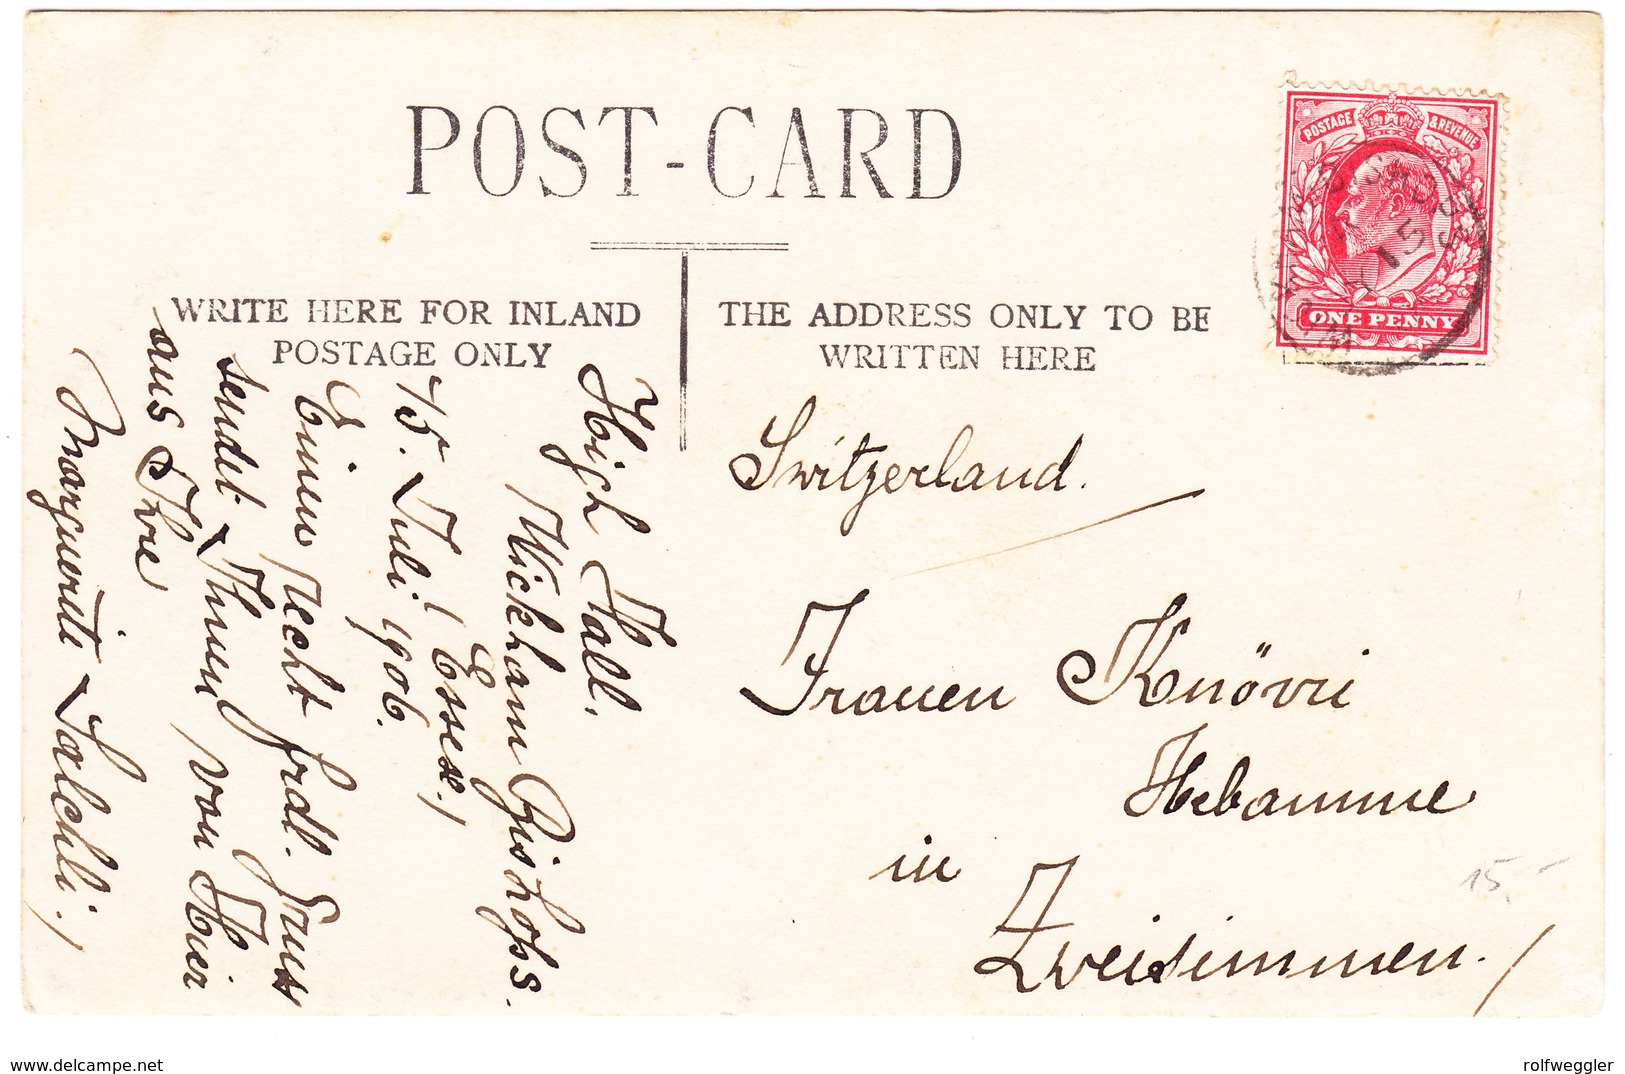 POST-CARD
WRITE HERE FOR INLAND
POSTAGE ONLY
THE ADDRESS ONLY TO BE
WRITTEN HERE
POSTAGE & REVENUE
ONE PENNY
15
High Hall.
Wickham Bishops.
Essex.)
15. Juli 1906.
Einen recht frdl. Gruss
sendet Ihnen von Hier
aus Ihre
Marguerite Salchli.)
Switzerland.
Frauen
Hebamme
in
Zweisimmen.)
15,-
delcampe.net
rolfweggler